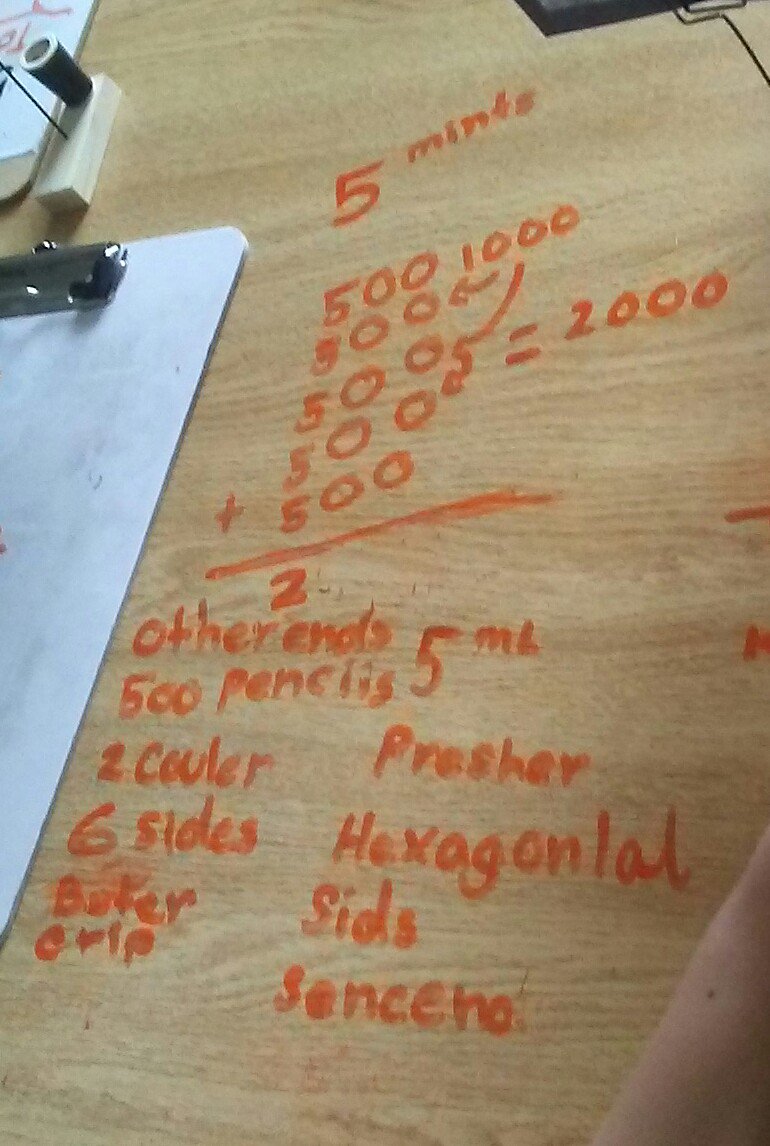 5 mints
500 1000
500
500 5 = 2000
500
+ 500
2
other ends 5 mL
500 penclis
2 Couler Presher
6 sides Hexagonlal
Beter Sids
Grip
Senceno